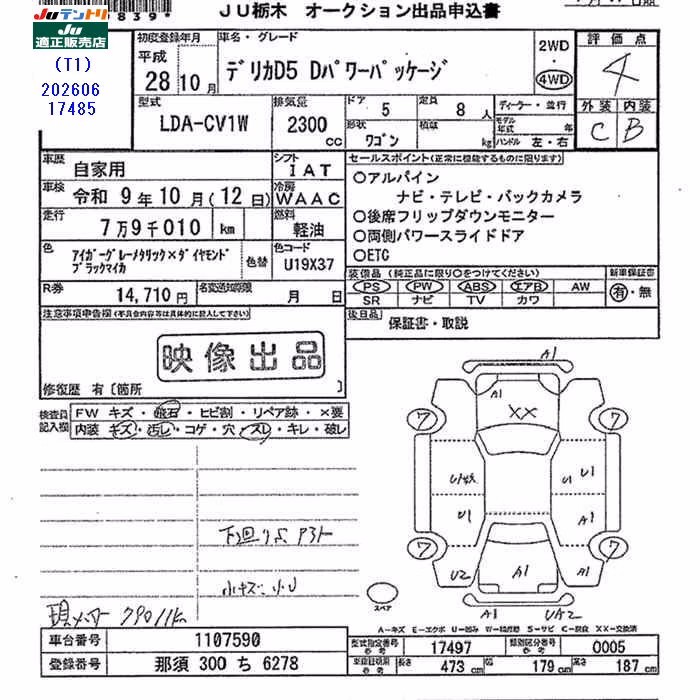 839
JU栃木 オークション出品申込書
Juテントリ
Ju
適正販売店
(T1)
202606
17485
初度登録年月
平成
28年10月
車名・グレード
デリカD5 Dパワーパッケージ
2WD
・
4WD
評価点
4
外装 内装
C B
型式
LDA-CV1W
排気量
2300
cc
ドア
5
定員
8人
形状
ワゴン
積載
kg
ディーラー・並行
モデル年式 年
ハンドル 左・右
車歴
自家用
シフト
IAT
車検
令和 9年10月(12日)
冷房
WAAC
走行
7万9千010 km
燃料
軽油
色
アイガーグレーメタリック×ダイヤモンド
ブラックマイカ
色替
色コード
U19X37
R券
14,710円
名変通知期限
月 日
セールスポイント(正常に機能するものに限ります)
○アルパイン
ナビ・テレビ・バックカメラ
○後席フリップダウンモニター
○両側パワースライドドア
○ETC
装備品 (純正品に限り○をつけてください)
PS PW ABS エアB AW
SR ナビ TV カワ
新車保証書
有・無
後日品
保証書・取説
注意事項申告欄(不具合内容等は具体的に記入して下さい)
映像出品
修復歴 有〔箇所 〕
検査員記入欄
FW キズ・飛石・ヒビ割・リペア跡・×要
内装 キズ・汚レ・コゲ・穴・スレ・キレ・破レ
下回りS アト
小キズ・小U
現メーター 79011k
A1
A1
XX
7
7
U1
U1
U1
A1
7
7
U2
A1
A1
A1
UA2
スペア
A-キズ E-エクボ U-凹み W-補修跡 S-サビ C-腐食 XX-交換済
車台番号
1107590
登録番号
那須 300 ち 6278
型式指定番号
参考
17497
類別区分番号
参考
0005
車検証切用
参考
長さ
473 cm
幅
179 cm
高さ
187 cm